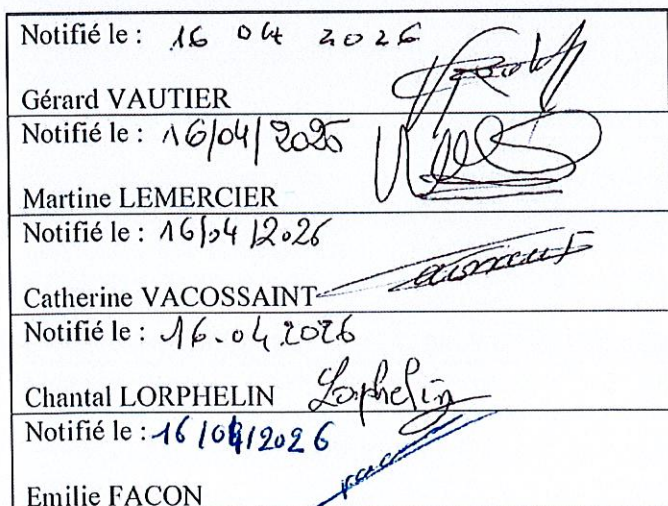 Notifié le : 16 04 2026
Gérard VAUTIER
Notifié le : 16/04/2025
Martine LEMERCIER
Notifié le : 16/04/2026
Catherine VACOSSAINT
Notifié le : 16.04.2026
Chantal LORPHELIN Lorphelin
Notifié le : 16/04/2026
Emilie FACON